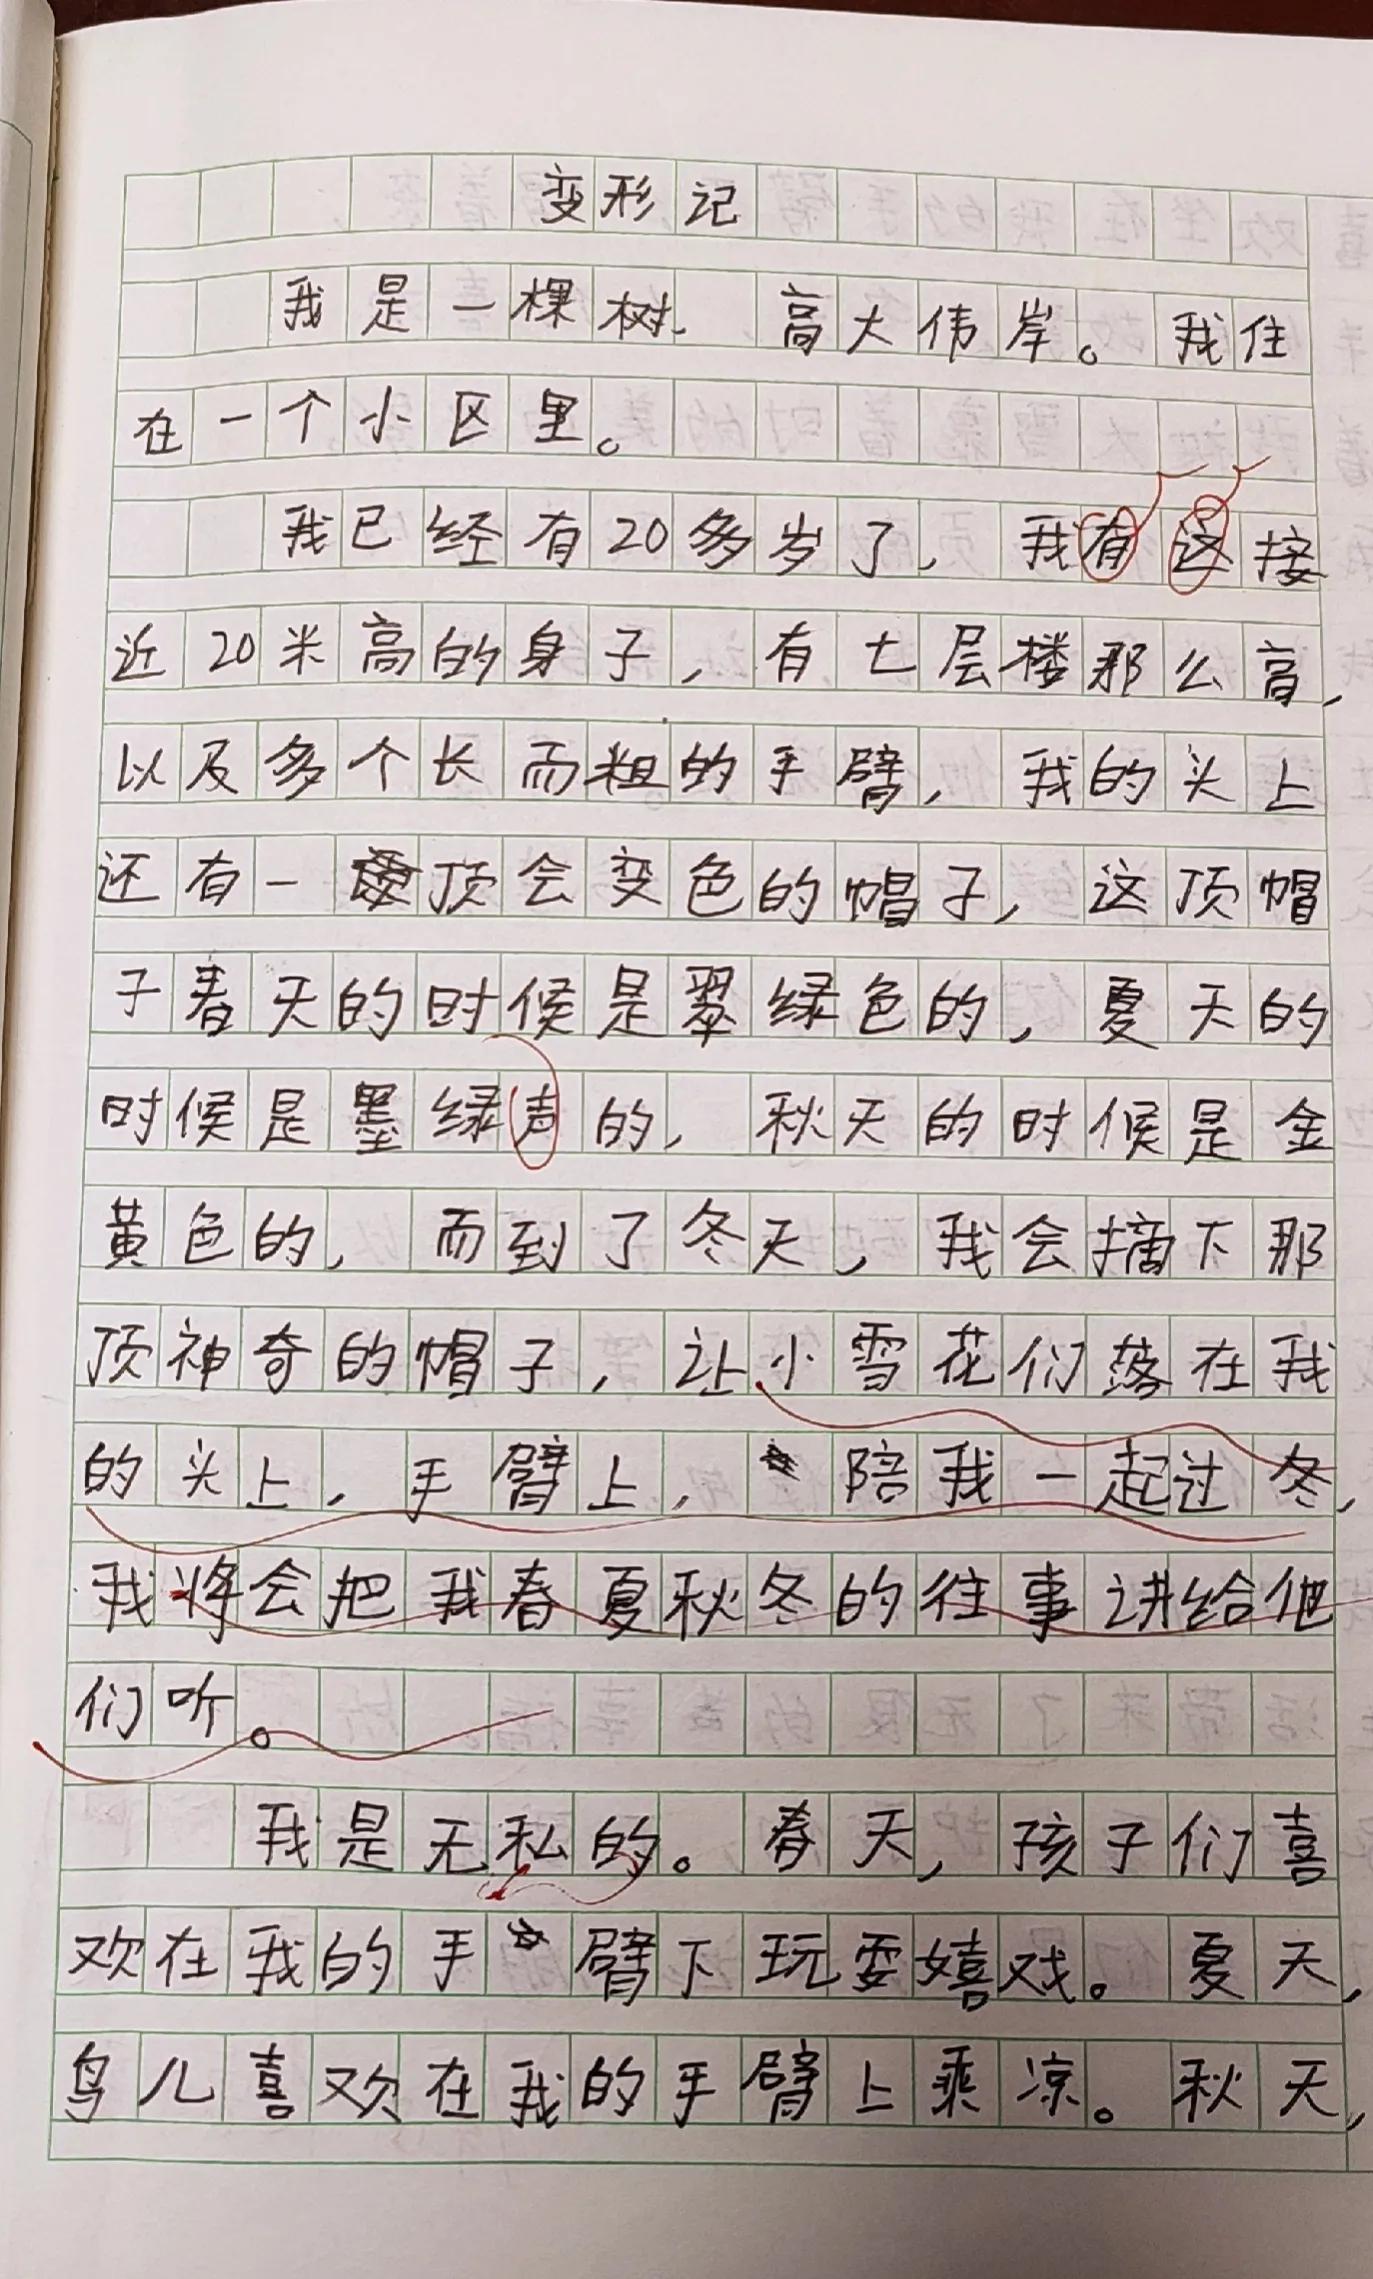 变形记
我是一棵树、高大伟岸。我住
在一个小区里。
我已经有20多岁了，我有这接
近20米高的身子，有七层楼那么高，
以及多个长而粗的手臂，我的头上
还有一顶会变色的帽子，这顶帽
子春天的时候是翠绿色的，夏天的
时候是墨绿声的，秋天的时候是金
黄色的，而到了冬天，我会摘下那
顶神奇的帽子，让小雪花们落在我
的头上，手臂上，陪我一起过冬，
我将会把我春夏秋冬的往事讲给他
们听。
我是无私的。春天，孩子们喜
欢在我的手臂下玩耍嬉戏。夏天，
鸟儿喜欢在我的手臂上乘凉。秋天，